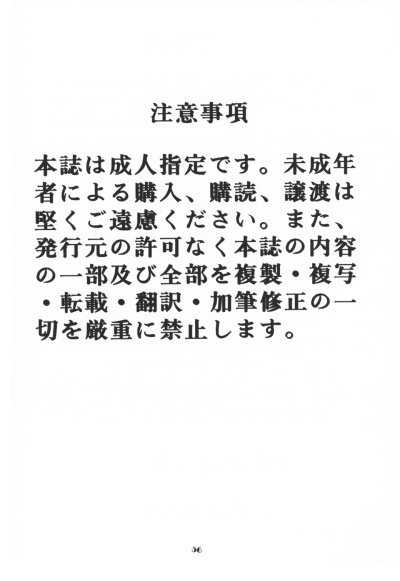 注意事項
本誌は成人指定です。未成年
者による購入、購読、譲渡は
堅くご遠慮ください。また、
発行元の許可なく本誌の内容
の一部及び全部を複製・複写
・転載・翻訳・加筆修正の一
切を厳重に禁止します。